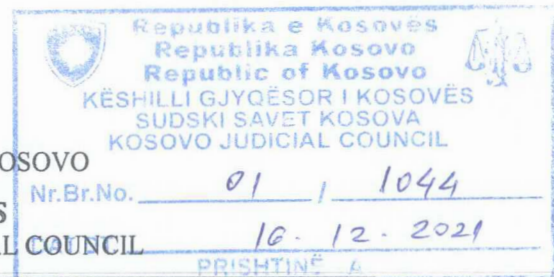 Republika e Kosovës
Republika Kosovo
Republic of Kosovo
KËSHILLI GJYQËSOR I KOSOVËS
SUDSKI SAVET KOSOVA
KOSOVO JUDICIAL COUNCIL
OSOVO
Nr.Br.No. 01 / 1044
S
L COUNCIL 16. 12. 2021
PRISHTINË A